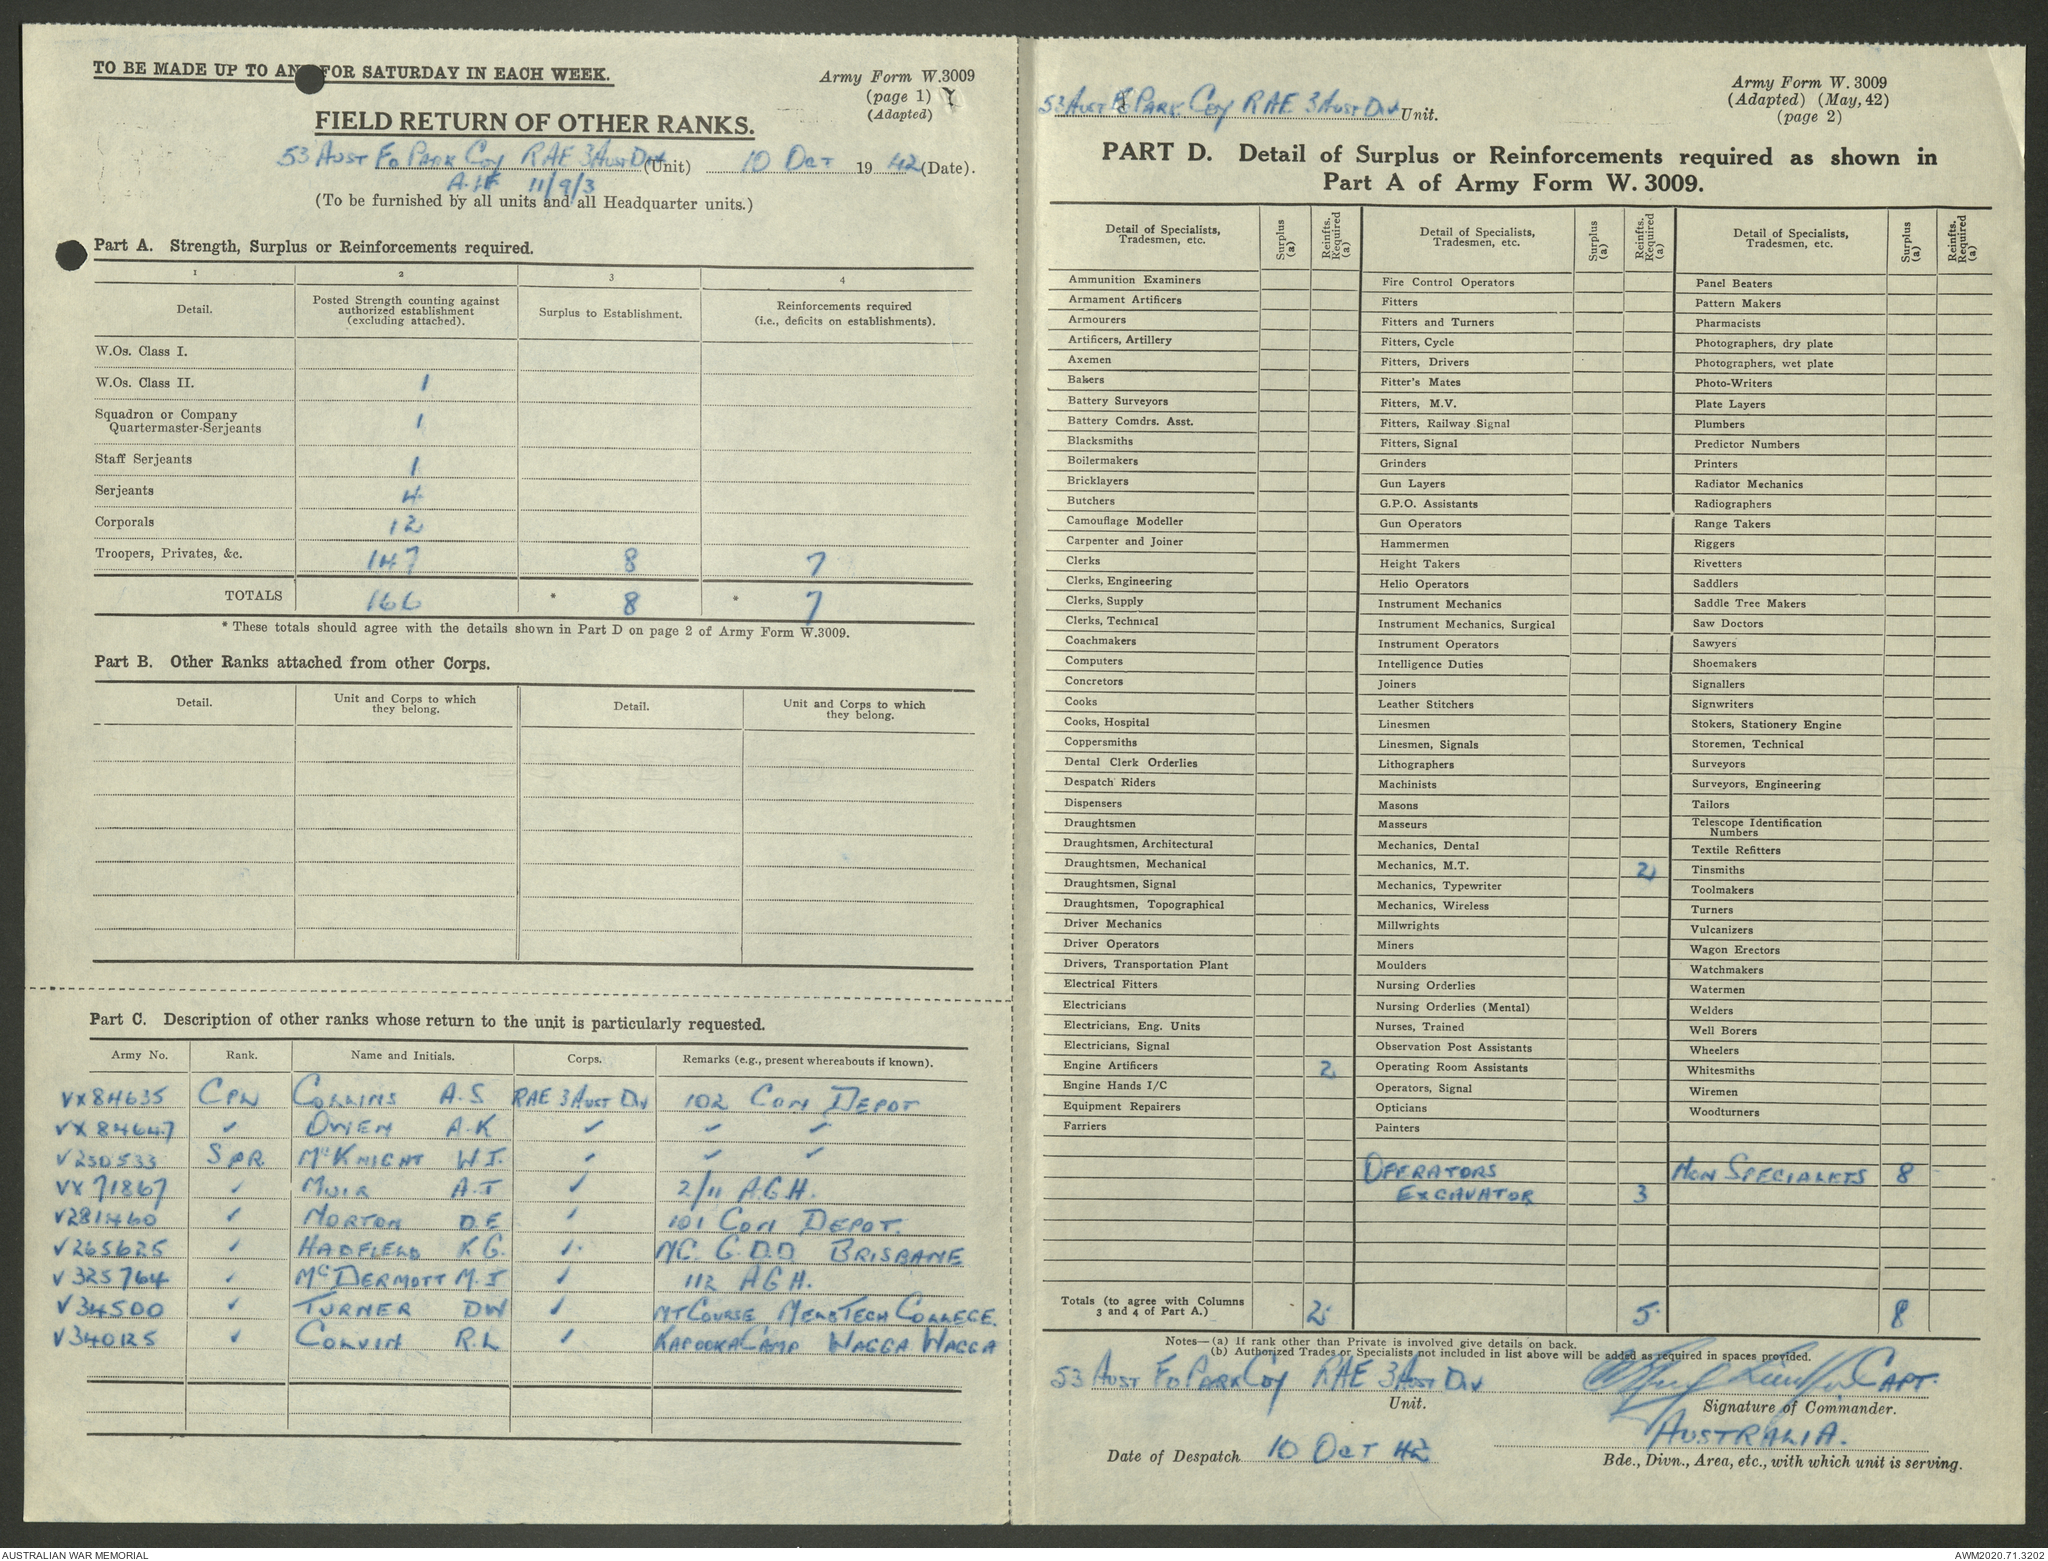 TO BE MADE UP TO AND FOR SATURDAY IN EACH WEEK.
Army Form W.3009
(page 1)
(Adapted)
FIELD RETURN OF OTHER RANKS.
53 AUST FD PARK COY RAE 3 AUST DIV (Unit) 10 OCT 1942 (Date).
A.I.F 11/9/3
(To be furnished by all units and all Headquarter units.)
Part A. Strength, Surplus or Reinforcements required.
1 2 3 4
Detail. Posted Strength counting against authorized establishment (excluding attached). Surplus to Establishment. Reinforcements required (i.e., deficits on establishments).
W.Os. Class I.
W.Os. Class II. 1
Squadron or Company Quartermaster-Serjeants 1
Staff Serjeants 1
Serjeants 4
Corporals 12
Troopers, Privates, &c. 147 8 7
TOTALS 166 * 8 * 7
* These totals should agree with the details shown in Part D on page 2 of Army Form W.3009.
Part B. Other Ranks attached from other Corps.
Detail. Unit and Corps to which they belong. Detail. Unit and Corps to which they belong.
Part C. Description of other ranks whose return to the unit is particularly requested.
Army No. Rank. Name and Initials. Corps. Remarks (e.g., present whereabouts if known).
VX84635 CPL COLLINS A.S RAE 3 AUST DIV 102 CON DEPOT
VX84647 ✓ OWEN A.K ✓ ✓ ✓
V250533 SPR. McKNIGHT W.J. ✓ ✓ ✓
VX71867 ✓ MUIR A.T ✓ 2/11 A.G.H.
V281460 ✓ NORTON D.E ✓ 101 CON DEPOT.
V265625 ✓ HADFIELD K.G. ✓ MC G.D.D BRISBANE
V325764 ✓ McDERMOTT M.J ✓ 112 AGH.
V34500 ✓ TURNER DW ✓ MT COURSE MELB TECH COLLEGE.
V340125 ✓ COLVIN R.L ✓ KAPOOKA CAMP WAGGA WAGGA
53 AUST FD PARK COY RAE 3 AUST DIV Unit.
Army Form W. 3009
(Adapted) (May, 42)
(page 2)
PART D. Detail of Surplus or Reinforcements required as shown in
Part A of Army Form W. 3009.
Detail of Specialists, Tradesmen, etc. Surplus (a) Reinfts. Required (a) Detail of Specialists, Tradesmen, etc. Surplus (a) Reinfts. Required (a) Detail of Specialists, Tradesmen, etc. Surplus (a) Reinfts. Required (a)
Ammunition Examiners Fire Control Operators Panel Beaters
Armament Artificers Fitters Pattern Makers
Armourers Fitters and Turners Pharmacists
Artificers, Artillery Fitters, Cycle Photographers, dry plate
Axemen Fitters, Drivers Photographers, wet plate
Bakers Fitter's Mates Photo-Writers
Battery Surveyors Fitters, M.V. Plate Layers
Battery Comdrs. Asst. Fitters, Railway Signal Plumbers
Blacksmiths Fitters, Signal Predictor Numbers
Boilermakers Grinders Printers
Bricklayers Gun Layers Radiator Mechanics
Butchers G.P.O. Assistants Radiographers
Camouflage Modeller Gun Operators Range Takers
Carpenter and Joiner Hammermen Riggers
Clerks Height Takers Rivetters
Clerks, Engineering Helio Operators Saddlers
Clerks, Supply Instrument Mechanics Saddle Tree Makers
Clerks, Technical Instrument Mechanics, Surgical Saw Doctors
Coachmakers Instrument Operators Sawyers
Computers Intelligence Duties Shoemakers
Concretors Joiners Signallers
Cooks Leather Stitchers Signwriters
Cooks, Hospital Linesmen Stokers, Stationery Engine
Coppersmiths Linesmen, Signals Storemen, Technical
Dental Clerk Orderlies Lithographers Surveyors
Despatch Riders Machinists Surveyors, Engineering
Dispensers Masons Tailors
Draughtsmen Masseurs Telescope Identification Numbers
Draughtsmen, Architectural Mechanics, Dental Textile Refitters
Draughtsmen, Mechanical Mechanics, M.T. 2 Tinsmiths
Draughtsmen, Signal Mechanics, Typewriter Toolmakers
Draughtsmen, Topographical Mechanics, Wireless Turners
Driver Mechanics Millwrights Vulcanizers
Driver Operators Miners Wagon Erectors
Drivers, Transportation Plant Moulders Watchmakers
Electrical Fitters Nursing Orderlies Watermen
Electricians Nursing Orderlies (Mental) Welders
Electricians, Eng. Units Nurses, Trained Well Borers
Electricians, Signal Observation Post Assistants Wheelers
Engine Artificers 2 Operating Room Assistants Whitesmiths
Engine Hands I/C Operators, Signal Wiremen
Equipment Repairers Opticians Woodturners
Farriers Painters
OPERATORS NON SPECIALISTS 8
EXCAVATOR 3
Totals (to agree with Columns 3 and 4 of Part A.) 2 5 8
Notes—(a) If rank other than Private is involved give details on back.
(b) Authorized Trades or Specialists not included in list above will be added as required in spaces provided.
53 AUST FD PARK COY RAE 3 AUST DIV CAPT.
Unit. Signature of Commander.
AUSTRALIA.
Date of Despatch 10 OCT 42
Bde., Divn., Area, etc., with which unit is serving.
AUSTRALIAN WAR MEMORIAL AWM2020.71.3202